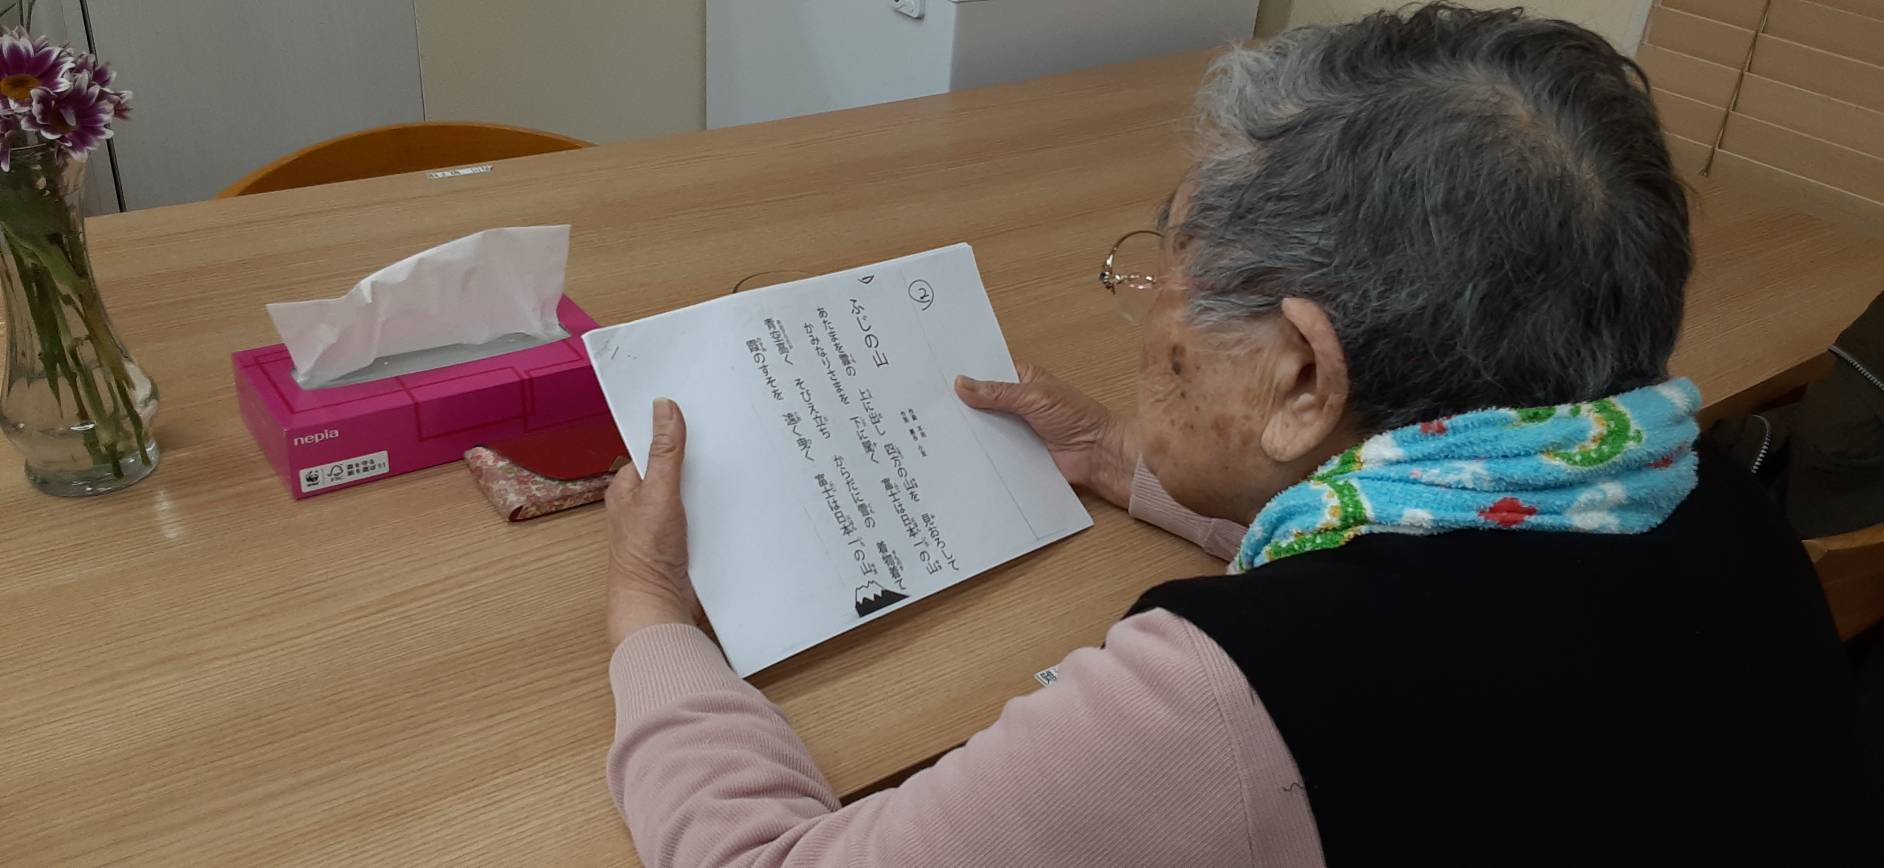 ②
ふじの山
あたまを雲の 上に出し 四方の山を 見おろして
かみなりさまを 下に聞く 富士は日本一の山
青空高く そびえ立ち からだに雪の 着物着て
霞のすそを 遠く曳く 富士は日本一の山
nepia
WWF
FSC